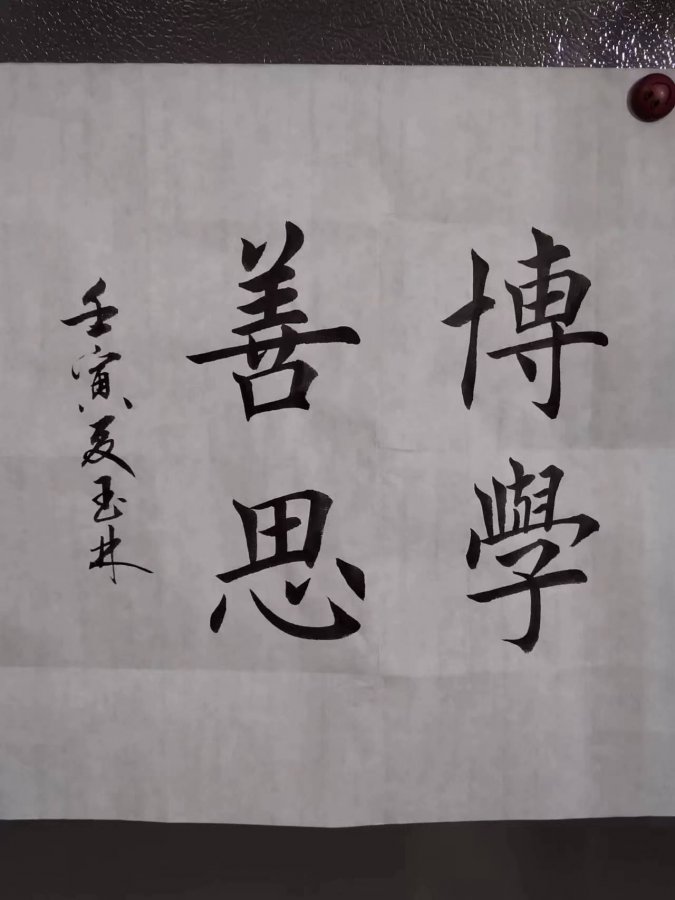 博學
善思
壬寅夏玉林